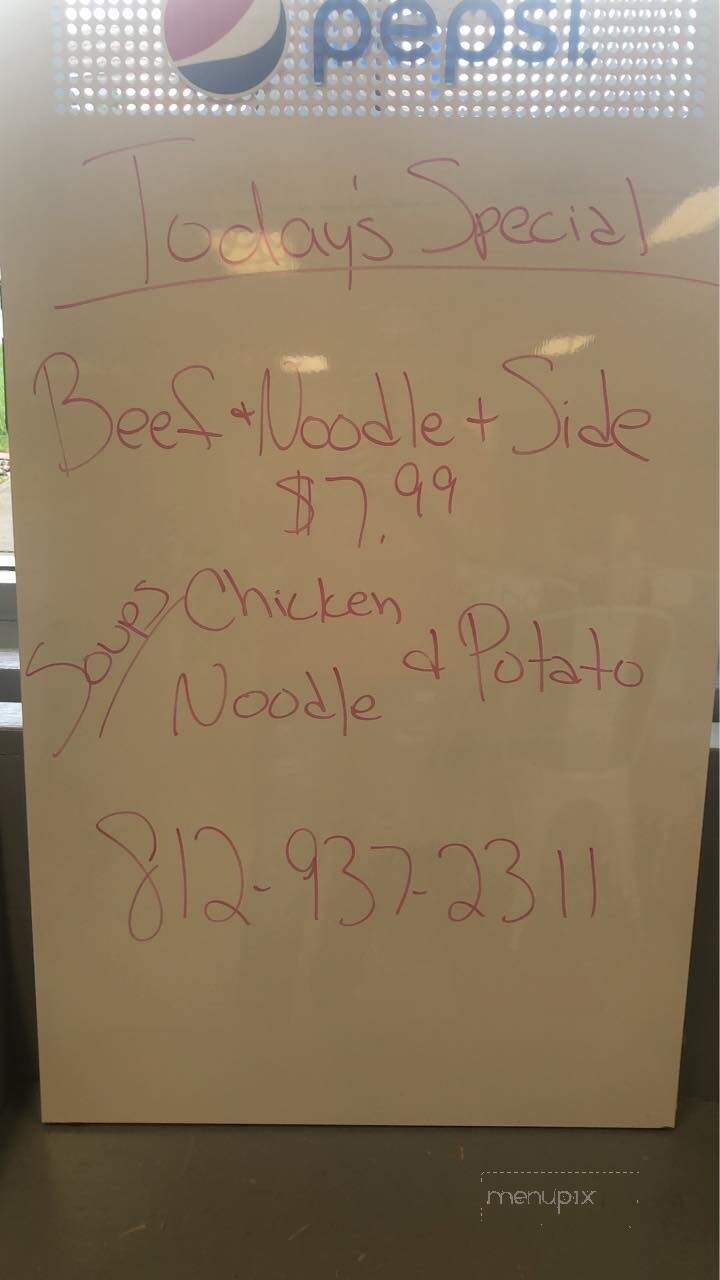 pepsi.
Today's Special
Beef + Noodle + Side
$7.99
Soups Chicken
Noodle & Potato
812-937-2311
menupix